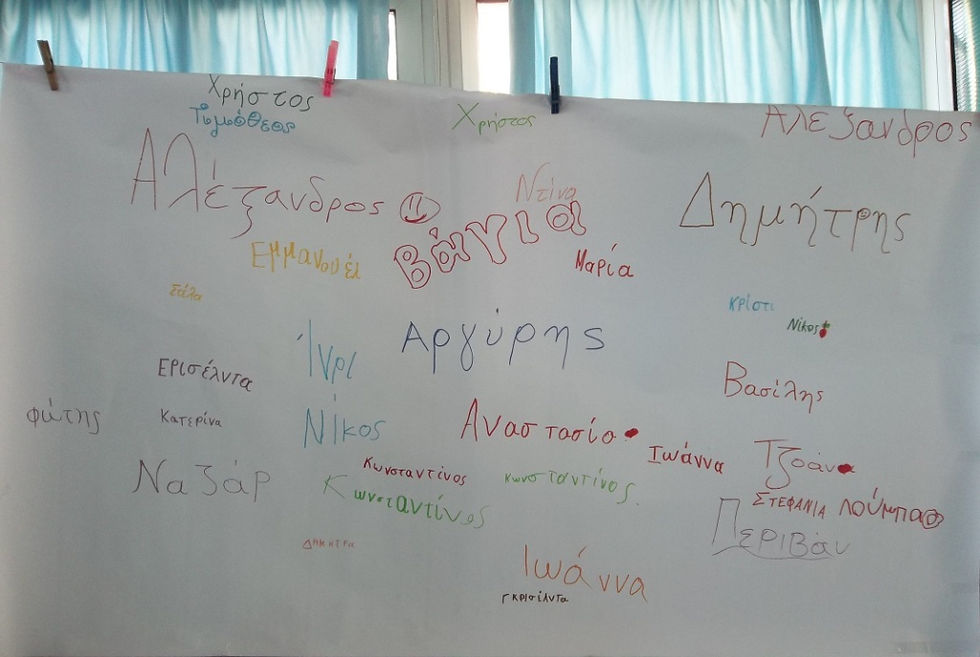 Χρήστος
Τιμόθεος
Χρήστος
Αλεξανδρος
Αλέξανδρος
Ντίνα
Βάγια
Δημήτρης
Εμμανουέλ
Μαρία
Στέλα
Κρίστι
Νίκος
Αργύρης
Ίνρι
Ερισέλντα
Βασίλης
φώτης
Κατερίνα
Νίκος
Αναστασίο
Ιωάννα
Τζοάνα
Ναζάρ
Κωνσταντίνος
Κωνσταντίνος
κωνσταντίνος.
ΣΤΕΦΑΝΙΑ ΛΟΎΜΠΑ
Περιβάν
ΔΗΜΗΤΡΑ
Ιωάννα
Γκρισέλντα